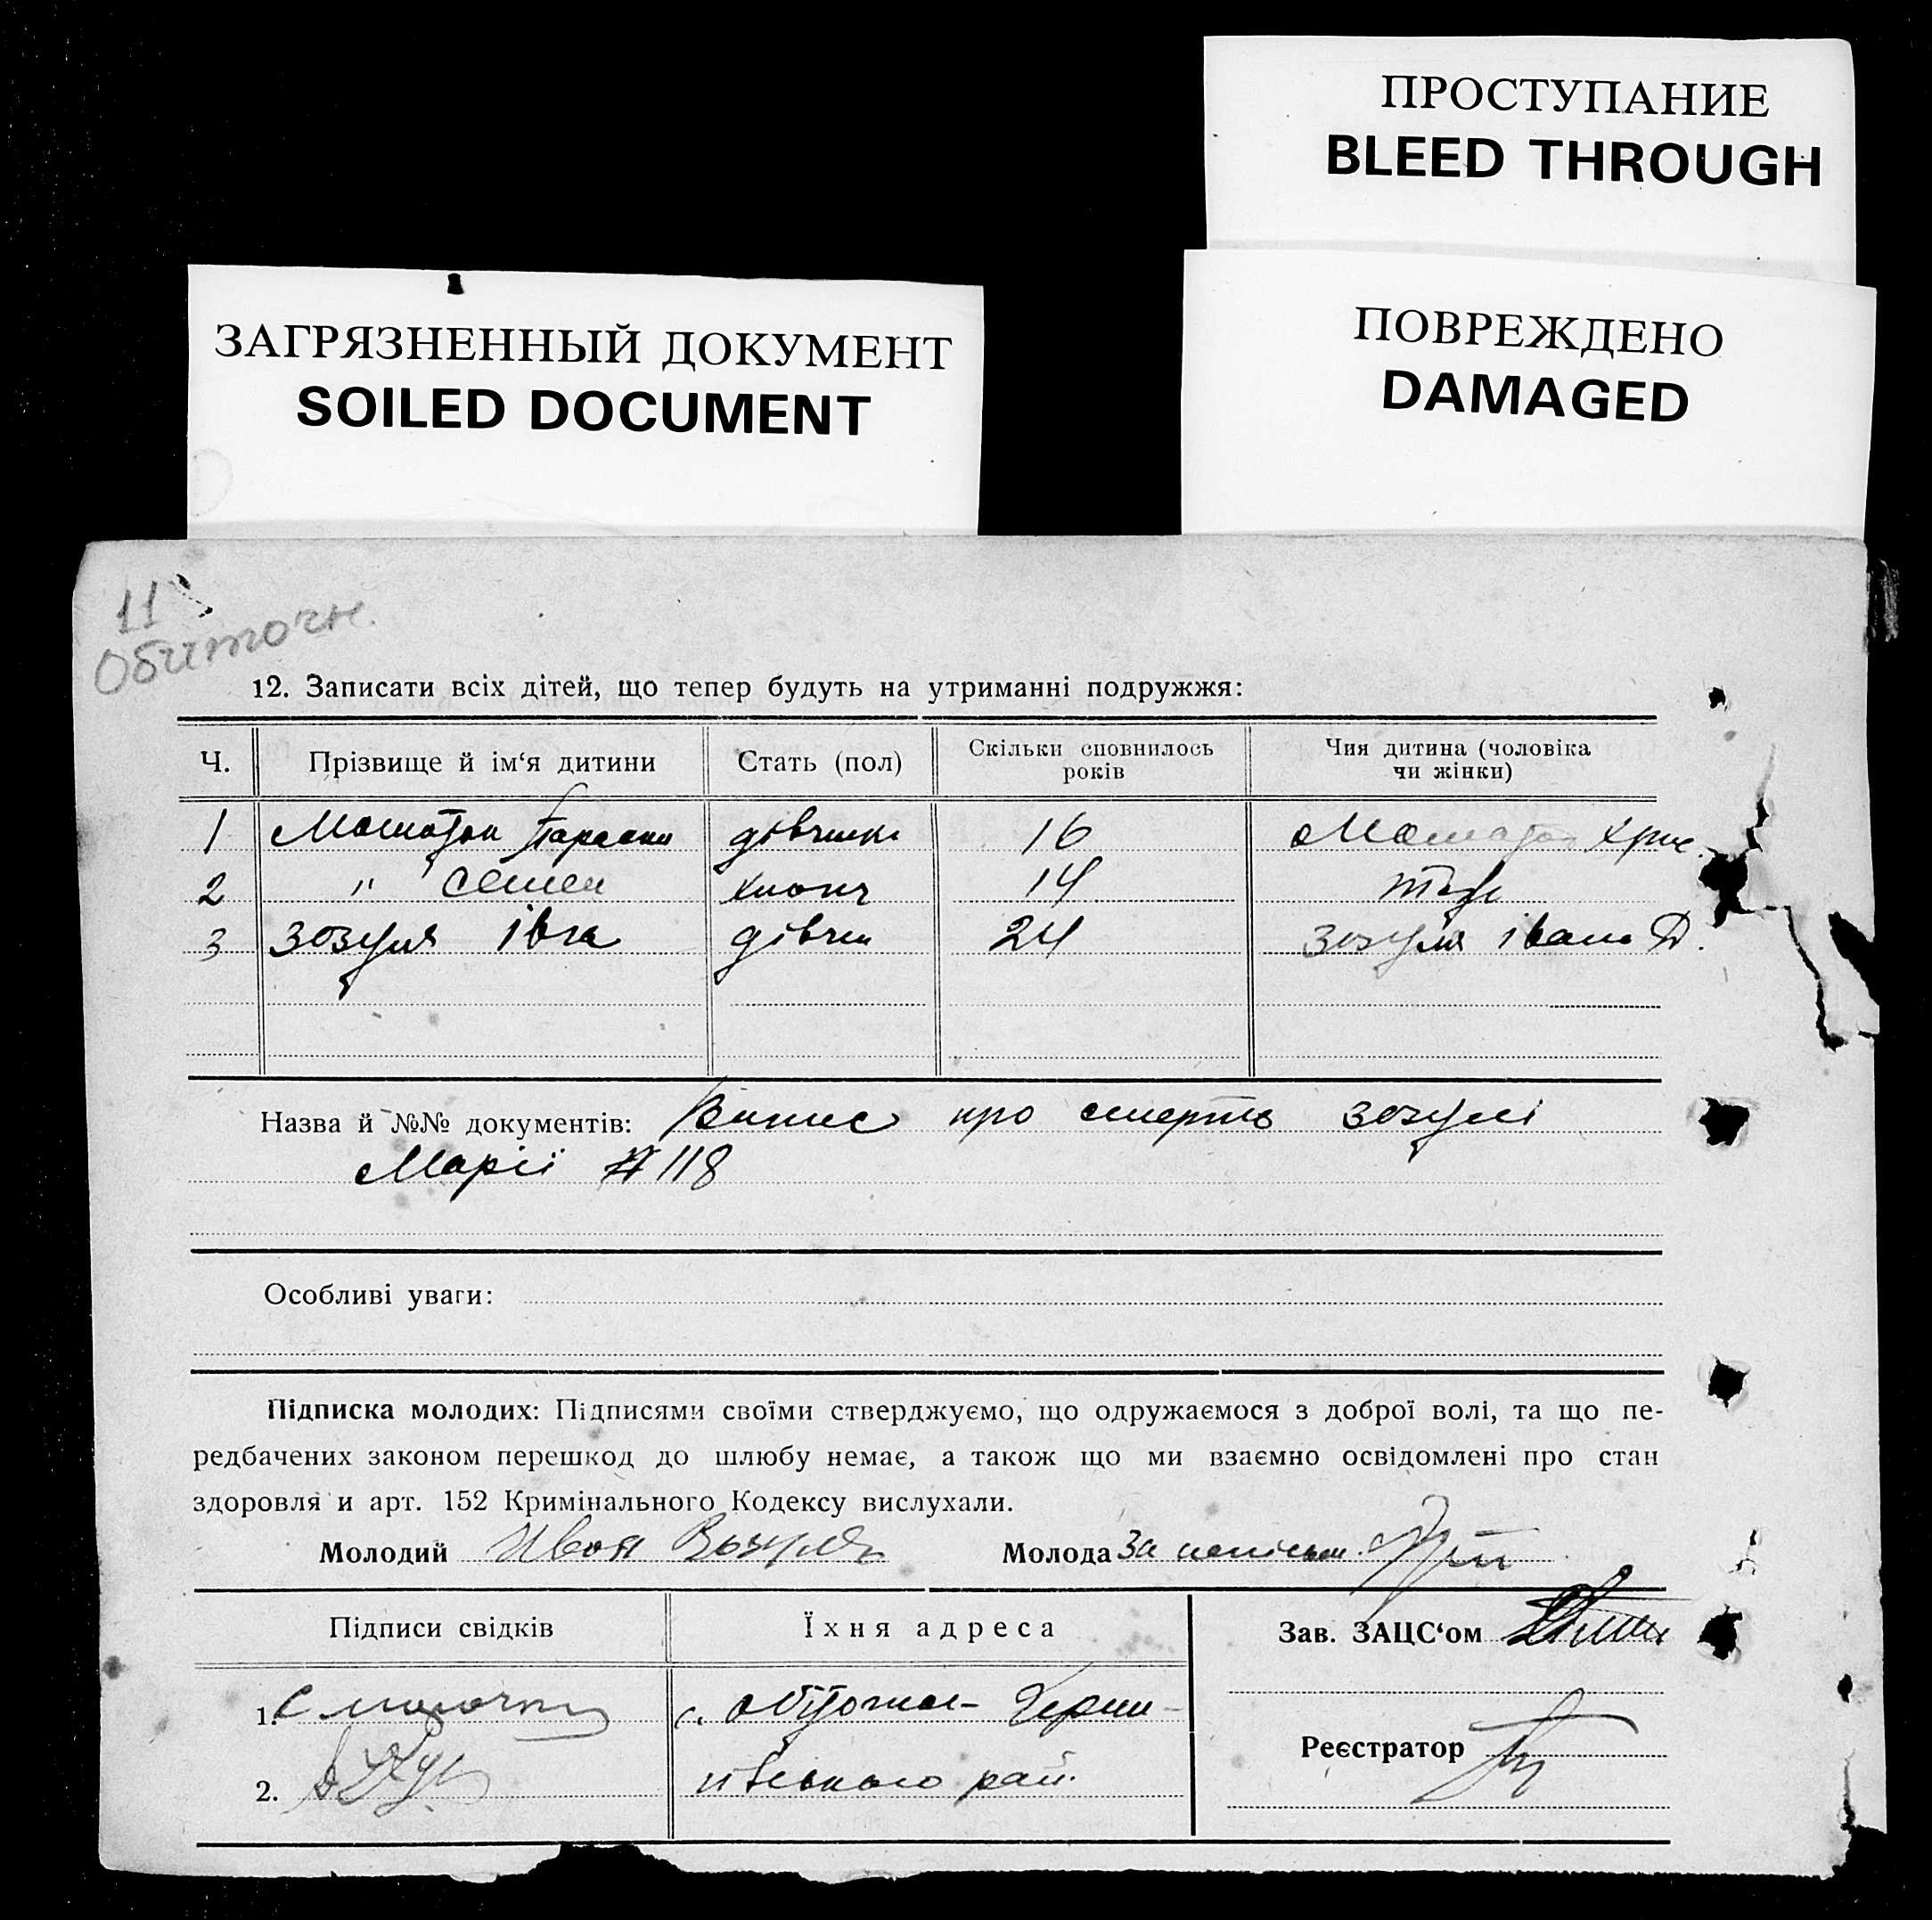 ПРОСТУПАНИЕ
BLEED THROUGH
ЗАГРЯЗНЕННЫЙ ДОКУМЕНТ
SOILED DOCUMENT
ПОВРЕЖДЕНО
DAMAGED
11
Обиточн.
12. Записати всіх дітей, що тепер будуть на утриманні подружжя:
Ч. Прізвище й ім‘я дитини Стать (пол) Скільки сповнилось років Чия дитина (чоловіка чи жінки)
1 16
2 " Семен хлопч 14
3 Зозуля Івга дівчин 24 Зозуля Івана Д.
Назва й №№ документів: Випис про смерть Зозулі
Марії № 118
Особливі уваги:
Підписка молодих: Підписями своїми стверджуємо, що одружаємося з доброї волі, та що пе-
редбачених законом перешкод до шлюбу немає, а також що ми взаємно освідомлені про стан
здоровля и арт. 152 Кримінального Кодексу вислухали.
Молодий Иван Молода За неписьм.
Підписи свідків Їхня адреса Зав. ЗАЦС‘ом
1. с.
Реєстратор
2. рай.